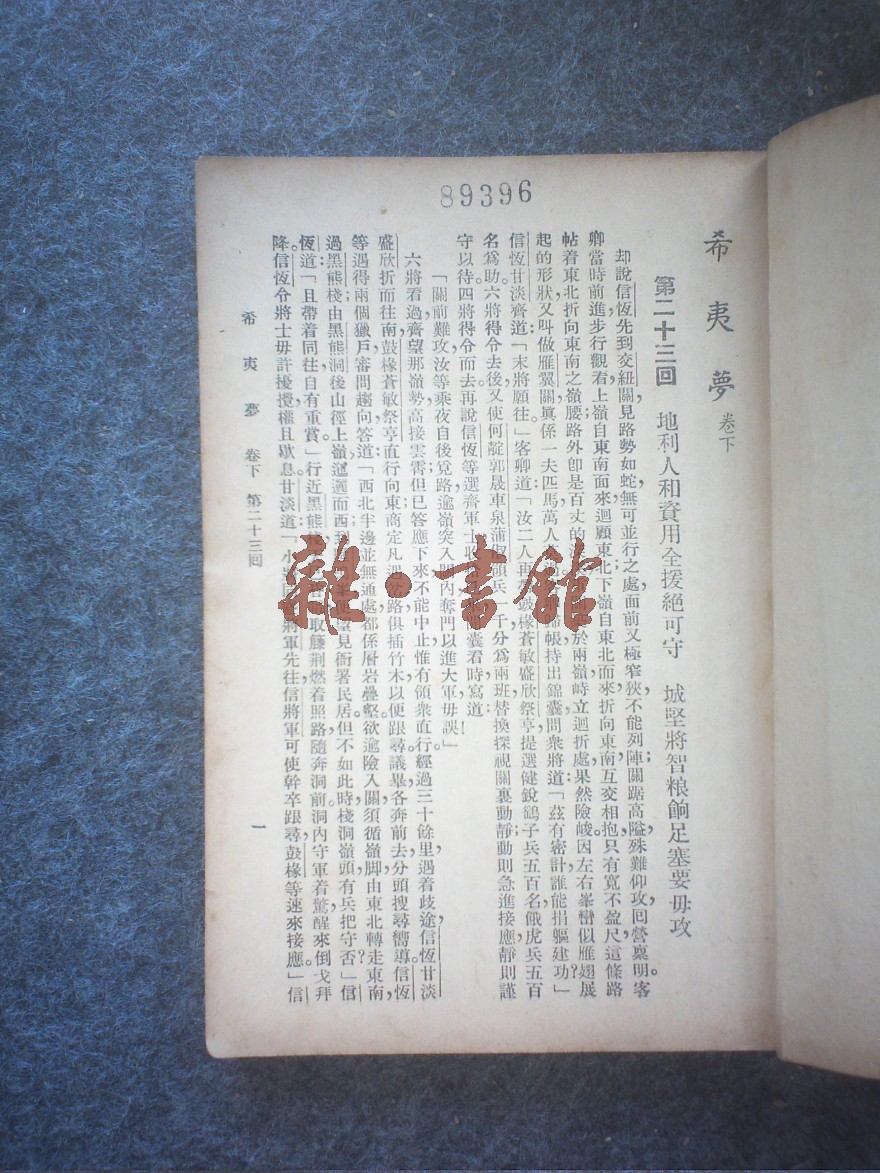 89396
希夷夢 卷下
第二十三回 地利人和資用全援絕可守 城堅將智粮餉足塞要毋攻
却說信恆先到交紐關,見路勢如蛇,無可並行之處,面前又極窄狹,不能列陣;關踞高隘,殊難仰攻,回營稟明。客
卿當時前進步行觀看,上嶺自東南而來,迴顧東北,下嶺自東北而來,折向東南,互交相抱,只有寬不盈尺這條路
帖着東北折向東南之嶺腰,路外卽是百丈的 於兩嶺峙立迴折處,果然險峻。因左右峯巒似雁翅展
起的形狀,又叫做雁翼關,眞係一夫匹馬,萬人 帳,持出錦囊,問衆將道:「茲有密計,誰能捐軀建功?」
信恆甘淡齊道:「末將願往」客卿道:「汝二人再 鼓椽蒼敏盛欣祭亭提選健銳鷂子兵五百名,餓虎兵五百
名爲助。六將得令去後,又使何靛郭晟車泉蒲 領兵一千,分爲兩班,替換探視關裏動靜;動則急進接應,靜則謹
守以待。四將得令而去。再說信恆等選齊軍士 囊看時,寫道:—
「關前難攻,汝等乘夜自後覓路,逾嶺突入 內,奪門以進大軍,毋誤」
六將看過,齊望那嶺勢高接雲霄,但已答應下來,不能中止,惟有領衆直行。經過三十餘里,遇着歧途,信恆甘淡
盛欣折而往南,鼓椽蒼敏祭亭直行向東;商定凡遇岔路,俱插竹木,以便跟尋。議畢,各奔前去,分頭搜尋嚮導。信恆
等遇得兩個獵戶,審問趨向,答道:「西北半邊並無通處,都係層岩疊壑。欲逾險入關,須循嶺脚,由東北轉走東南,
過黑熊棧,由黑熊洞後山徑上嶺,邐迤而西,到 見衙署民居。但不如此時棧洞嶺頭有兵把守否?」信
恆道:「且帶着同往,自有重賞」行近黑熊 取籐荆燃着照路,隨奔洞前。洞內守軍着驚醒來,倒戈拜
降。信恆令將士毋許擾攪,權且歇息。甘淡道:「小 將軍先往,信將軍可使幹卒跟尋鼓椽等速來接應。」信
希夷夢 卷下 第二十三回 一
雜·書館